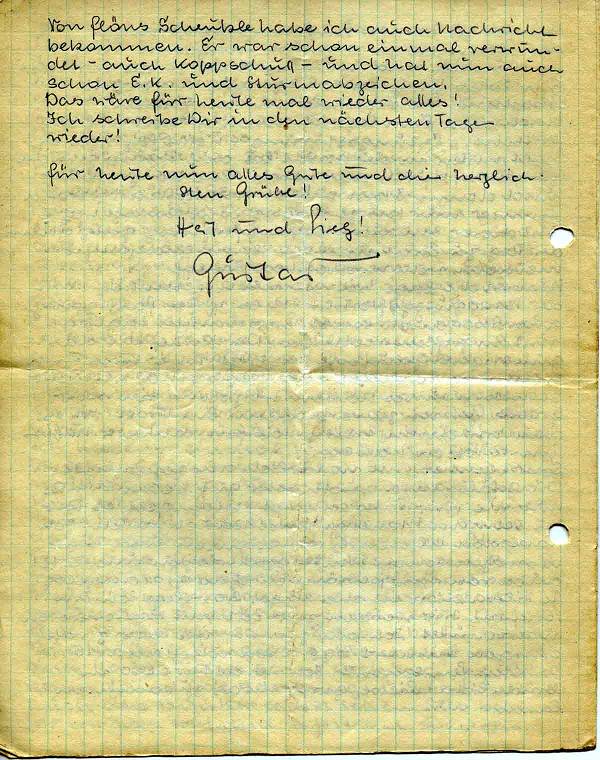 Von Alöns Scheukle habe ich auch Nachricht
bekommen. Er war schon einmal verwun-
det - auch Koppschuß - und hat nun auch
schon E.K. und Sturmabzeichen.
Das wäre für heute mal wieder alles!
Ich schreibe Dir in den nächsten Tagen
wieder!
für heute nun alles Gute und die herzlich-
sten Grüße!
Heil und Sieg!
Gustav